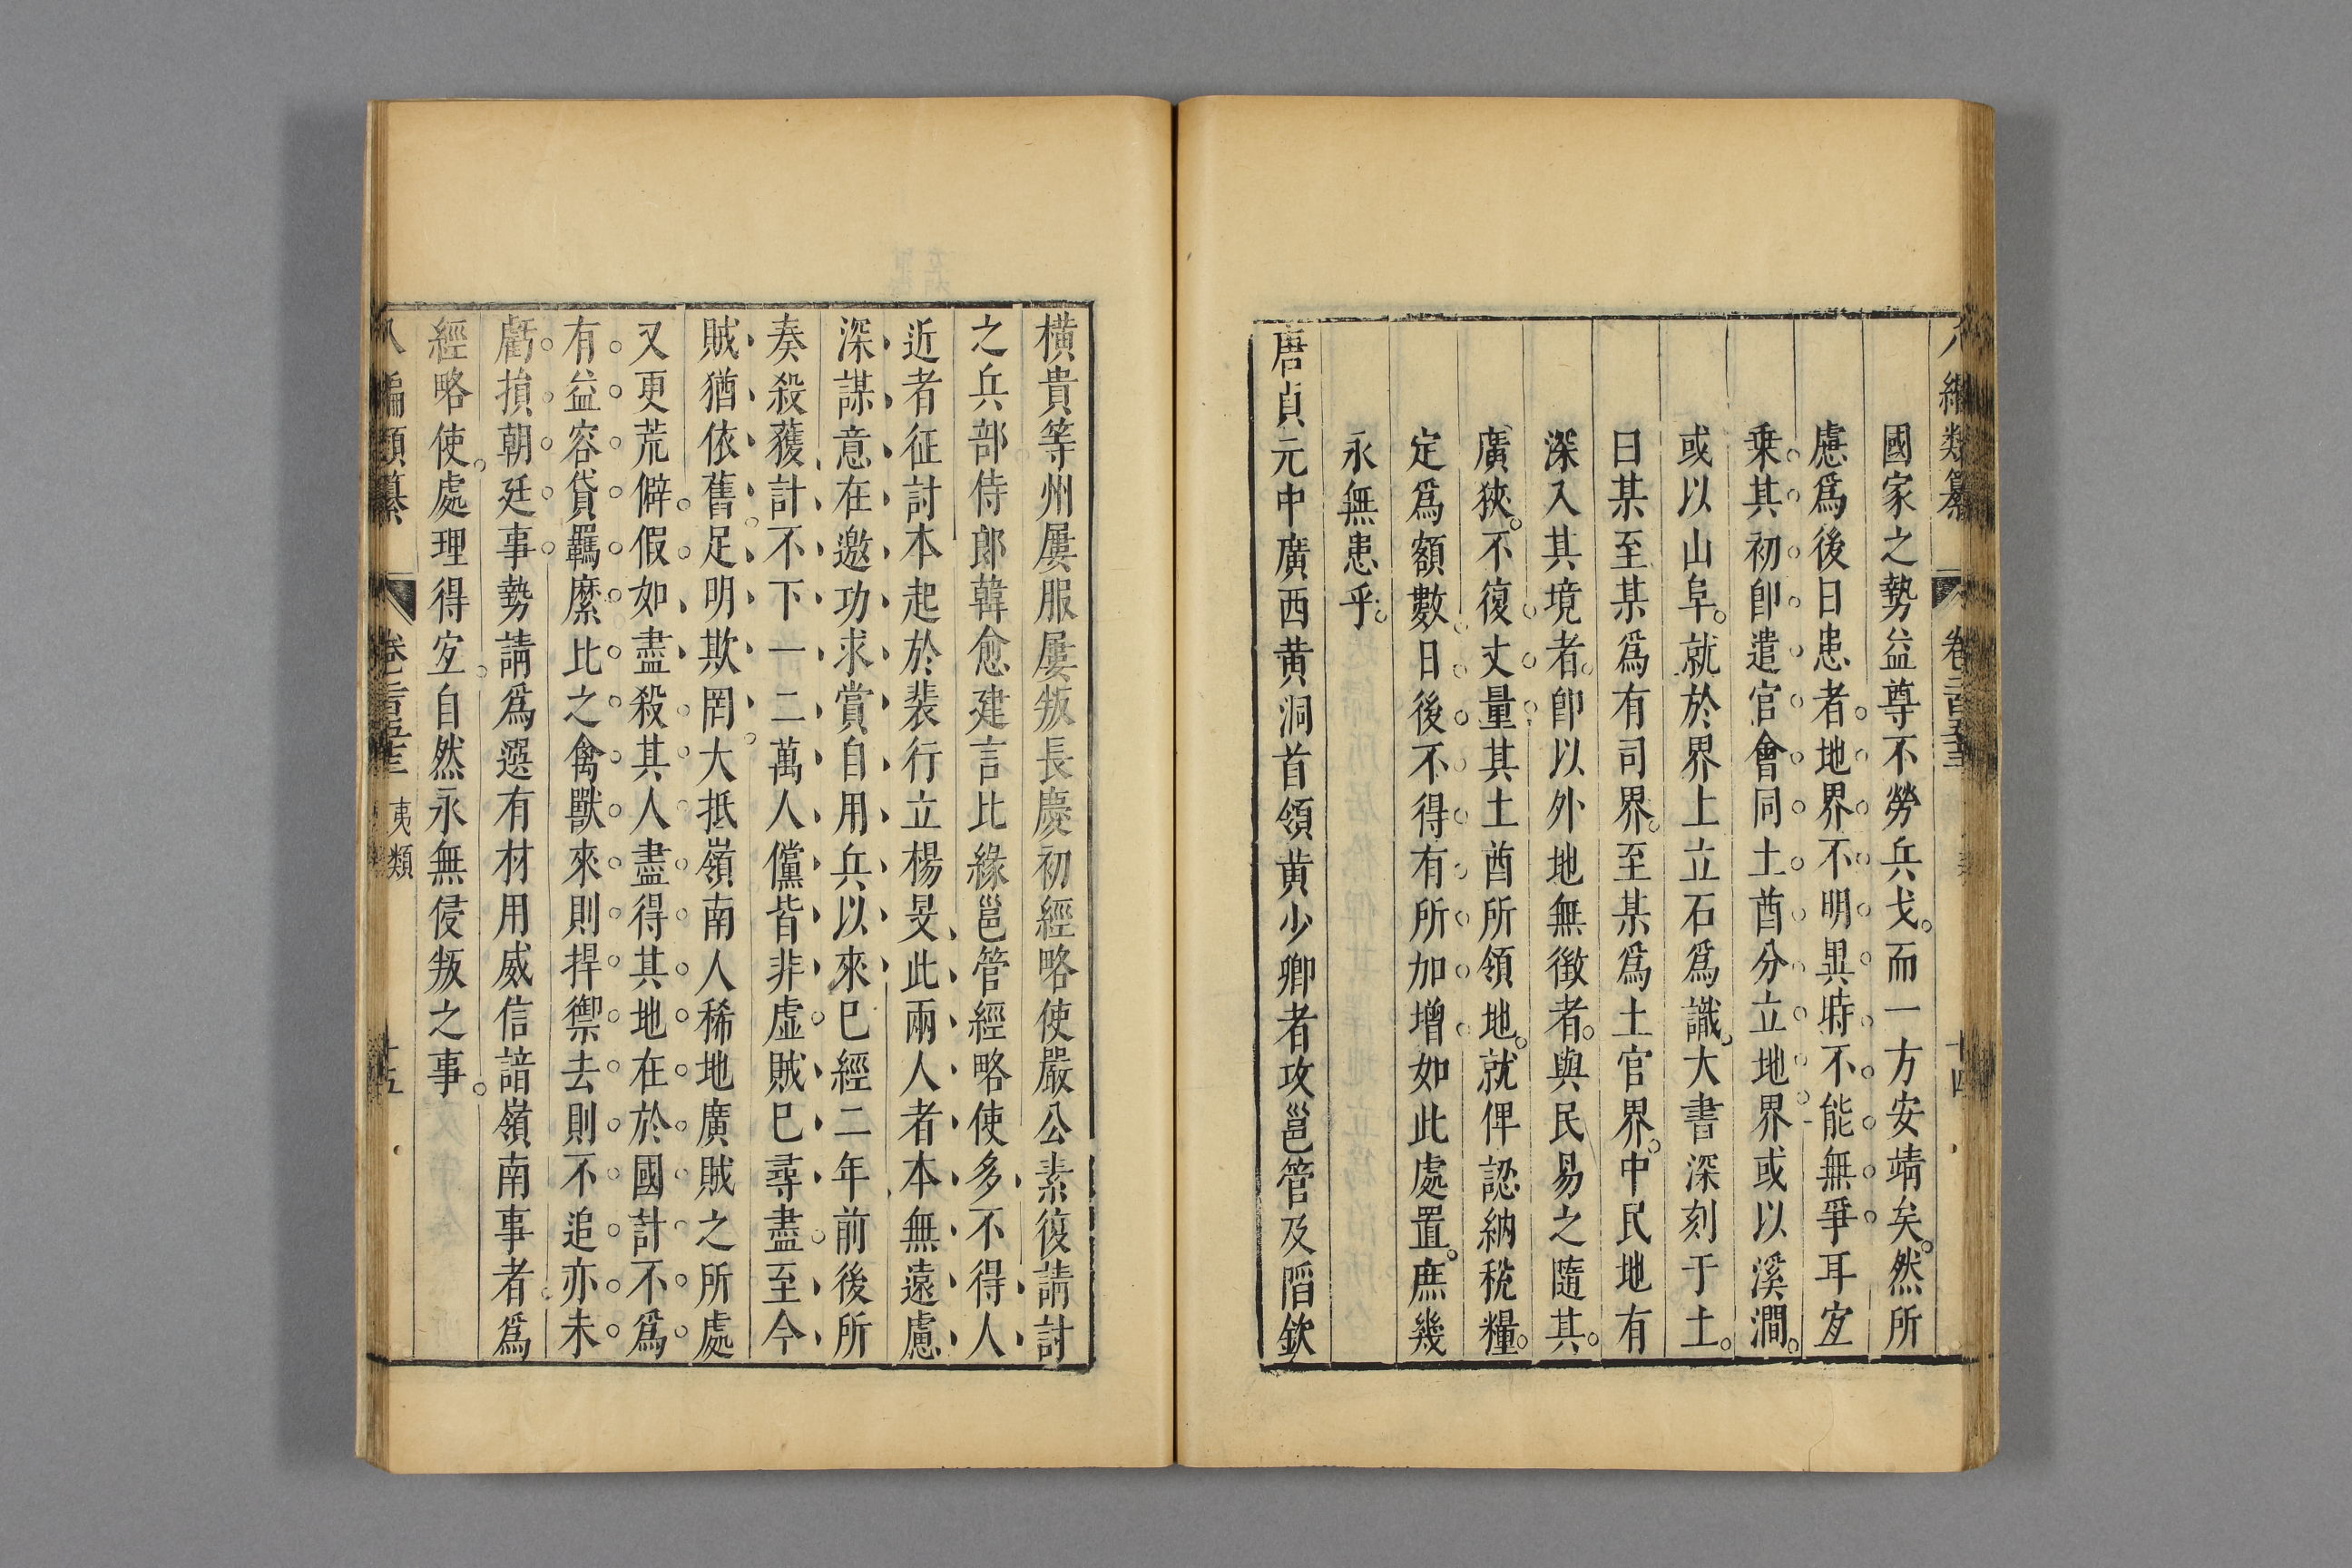 國家之勢益尊不勞兵戈。而一方安靖矣。然所
慮爲後日患者。地界不明異時不能無爭耳宐
乗其初卽遣官會同土酋分立地界或以溪澗。
或以山阜。就於界上立石爲識。大書深刻于土。
曰某至某爲有司界。至某爲土官界。中民地有
深入其境者。卽以外地無徴者。與民易之隨其。
廣狹。不復丈量其土酋所領地。就俾認納稅糧。
定爲額數日後不得有所加增如此處置。庶幾
永無患乎。
唐貞元中廣西黄洞首領黄少卿者攻邕管及㴞欽
橫貴等州屢服屢叛長慶初經略使嚴公素復請討
之兵部侍郎韓愈建言比緣邕管經略使多不得人
近者征討本起於裴行立楊旻此兩人者本無遠慮
深謀意在邀功求賞自用兵以來巳經二年前後所
奏殺獲計不下一二萬人儻皆非虛賊巳尋盡至今
賊猶依舊足明欺罔大抵嶺南人稀地廣賊之所處
又更荒僻假如盡殺其人盡得其地在於國計不爲
有益容貸羈縻比之禽獸來則捍禦去則不追亦未
虧損朝廷事勢請爲選有材用威信諳嶺南事者爲
經略使。處理得宐自然永無侵叛之事。
八編類纂 卷 夷類 十五